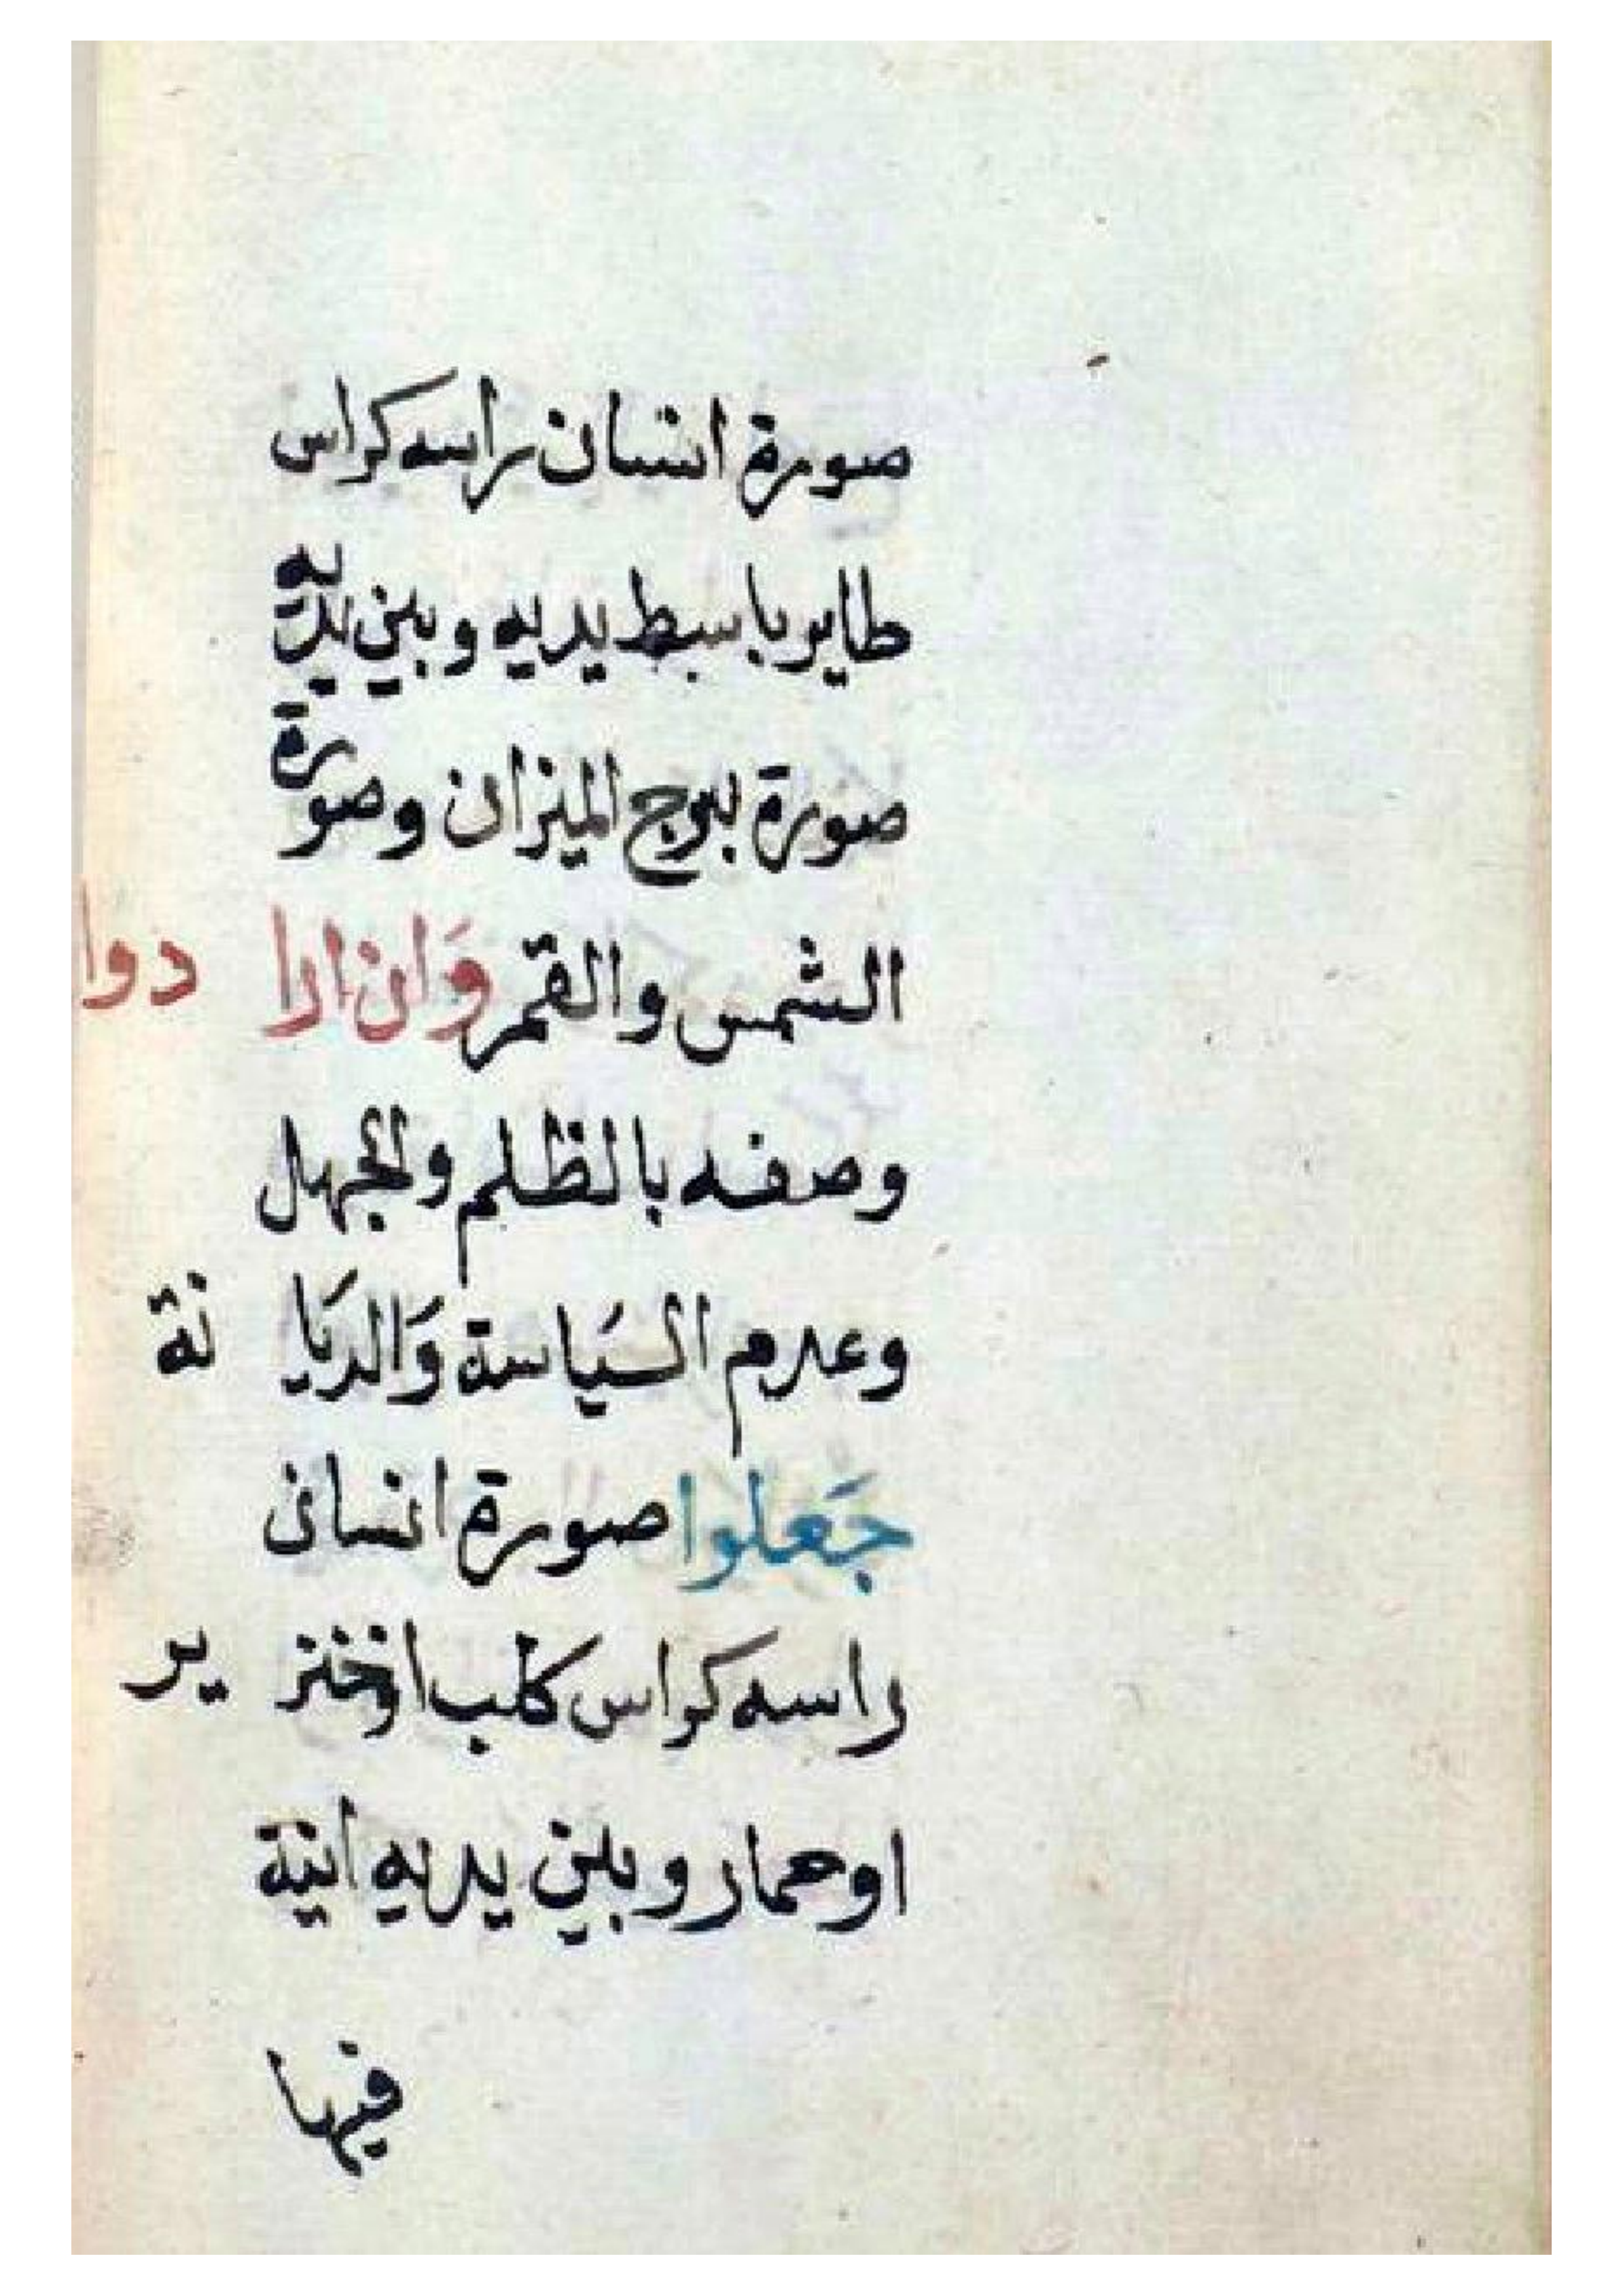 صورة انسان راسه كراس
طاير باسط يديه وبين يديه
صورة لبرج الميزان وصورة
الشمس والقمر وَان ارا دوا
وصفه بالظلم والجهل
وعدم السَياسة وَالديَا نة
جَعلوا صورة انسان
راسه كراس كلب اوخنز ير
اوحمار وبين يديه انية
فيها